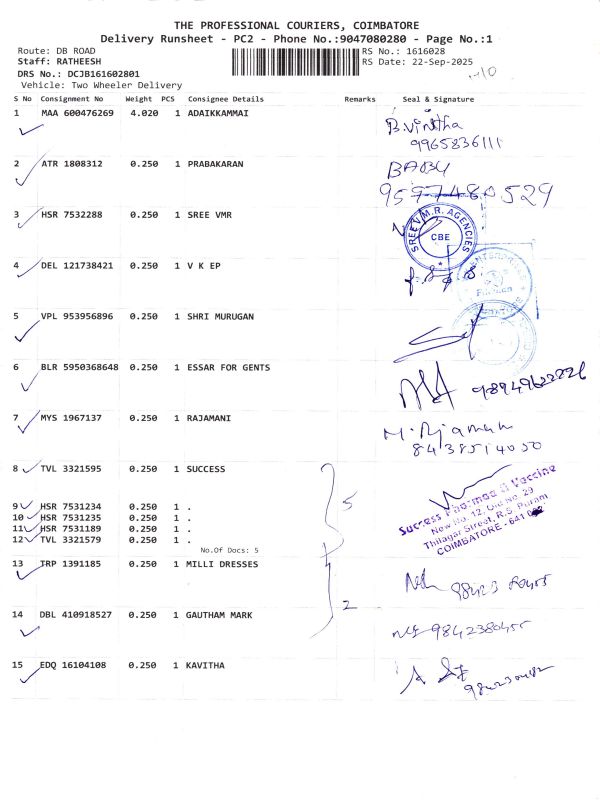 THE PROFESSIONAL COURIERS, COIMBATORE
Delivery Runsheet - PC2 - Phone No.:9047080280 - Page No.:1
Route: DB ROAD RS No.: 1616028
Staff: RATHEESH RS Date: 22-Sep-2025
DRS No.: DCJB161602801
Vehicle: Two Wheeler Delivery
S No Consignment No Weight PCS Consignee Details Remarks Seal & Signature
1 MAA 600476269 4.020 1 ADAIKKAMMAI
9965836111
2 ATR 1808312 0.250 1 PRABAKARAN BABU
9597480529
3 HSR 7532288 0.250 1 SREE VMR
SREE V.M.R. AGENCIES
CBE
4 DEL 121738421 0.250 1 V K EP
5 VPL 953956896 0.250 1 SHRI MURUGAN
6 BLR 5950368648 0.250 1 ESSAR FOR GENTS
7 MYS 1967137 0.250 1 RAJAMANI
8438514050
8 TVL 3321595 0.250 1 SUCCESS
Success Pharma & Vaccine
New No. 12, Old No. 29
Thilagar Street, R.S. Puram
COIMBATORE - 641 002
5
9 HSR 7531234 0.250 1 .
10 HSR 7531235 0.250 1 .
11 HSR 7531189 0.250 1 .
12 TVL 3321579 0.250 1 .
No.Of Docs: 5
13 TRP 1391185 0.250 1 MILLI DRESSES
2
14 DBL 410918527 0.250 1 GAUTHAM MARK
9842380455
15 EDQ 16104108 0.250 1 KAVITHA